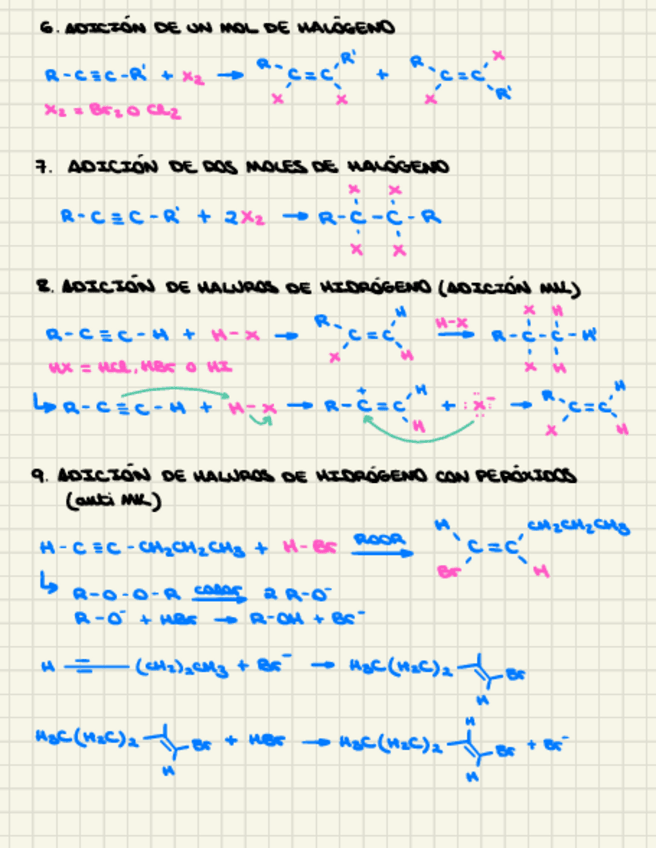 6. ADICIÓN DE UN MOL DE HALÓGENO
R-C≡C-R' + X₂ → R R' C=C X X + R X C=C X R'
X₂ = Br₂ O Cl₂
7. ADICIÓN DE DOS MOLES DE HALÓGENO
X X
R-C≡C-R' + 2X₂ → R-C-C-R
X X
8. ADICIÓN DE HALUROS DE HIDRÓGENO (ADICIÓN MK)
R-C≡C-H + H-X → R H C=C X H H-X → X H R-C-C-H' X H
HX = HCl, HBr O HI
↳ R-C≡C-H + H-X → R-C⁺=C H H + :X:⁻ → R H C=C X H
9. ADICIÓN DE HALUROS DE HIDRÓGENO CON PERÓXIDOS
(anti MK)
H-C≡C-CH₂CH₂CH₃ + H-Br ROOR → H CH₂CH₂CH₃ C=C Br H
↳ R-O-O-R CALOR → 2 R-O⁻
R-O⁻ + HBr → R-OH + Br⁻
H ≡ (CH₂)₂CH₃ + Br⁻ → H₃C(H₂C)₂ Br H
H₃C(H₂C)₂ Br H + HBr → H₃C(H₂C)₂ H Br H + Br⁻